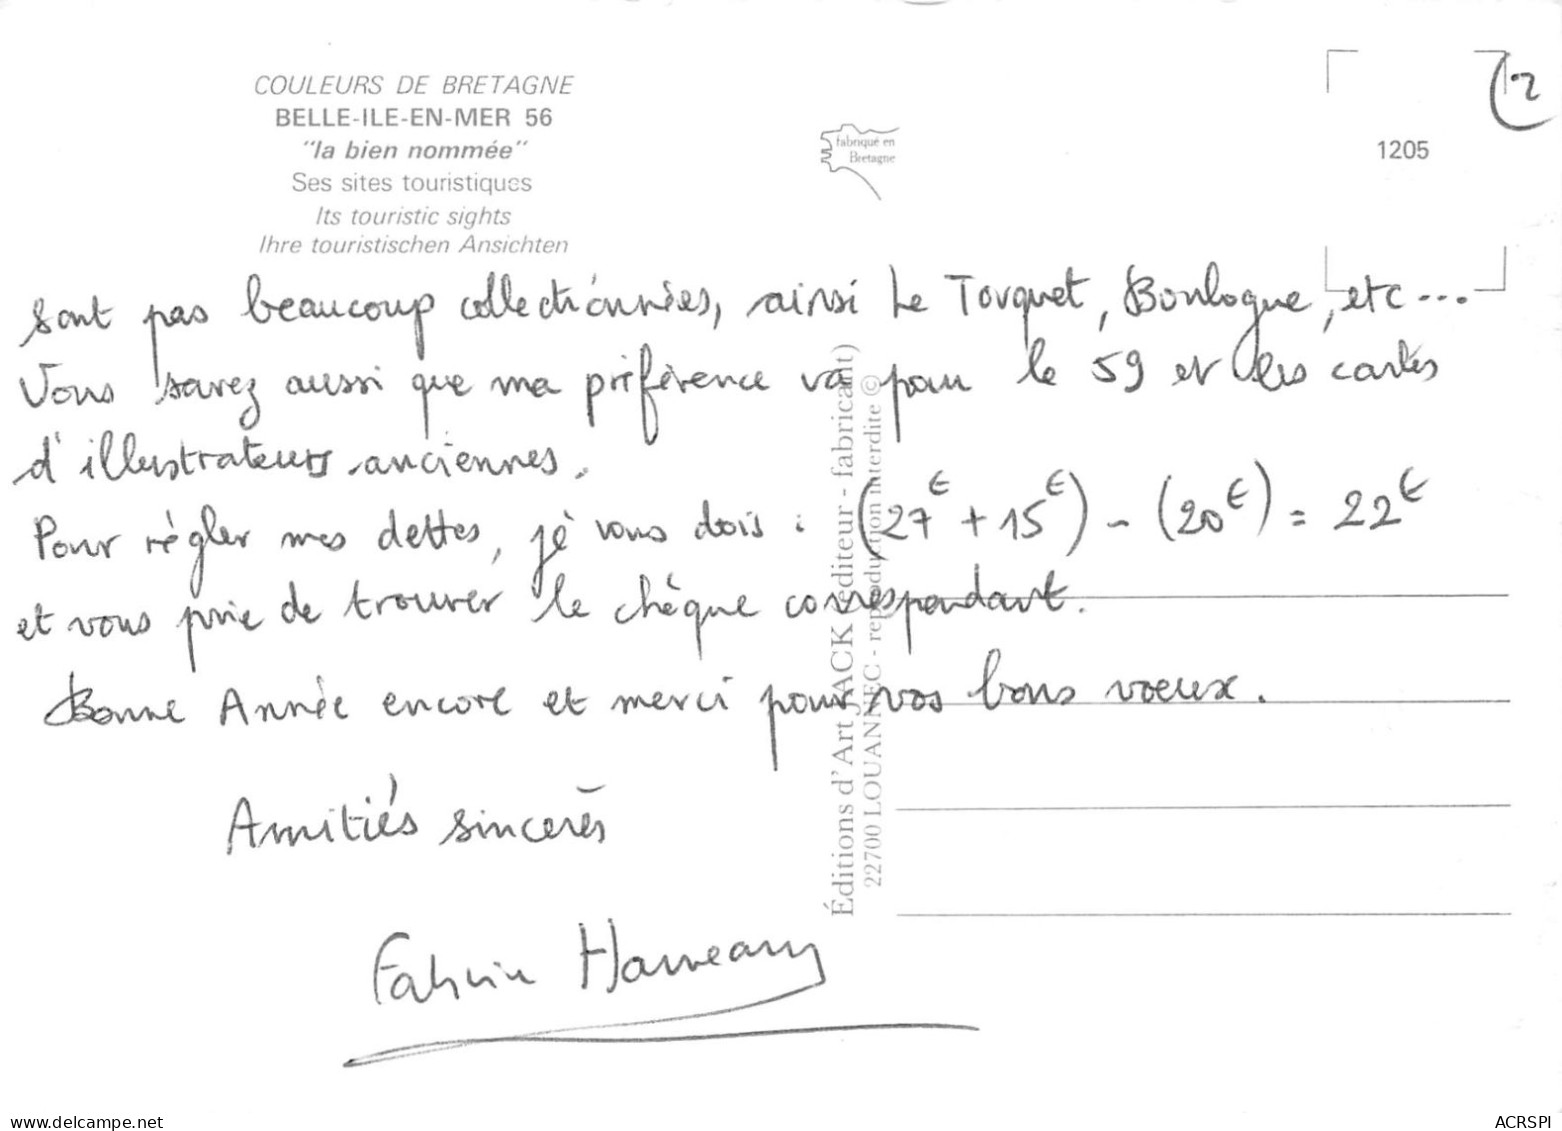 COULEURS DE BRETAGNE
BELLE-ILE-EN-MER 56
"la bien nommée"
Ses sites touristiques
Its touristic sights
Ihre touristischen Ansichten
fabriqué en
Bretagne
1205
(2
sont pas beaucoup collectionnées, ainsi Le Touquet, Boulogne, etc...
Vous savez aussi que ma préférence va pour le 59 et les cartes
d'illustrateurs anciennes.
Pour régler mes dettes, je vous dois : (27€ + 15€) - (20€) = 22€
et vous prie de trouver le chèque correspondant.
Bonne Année encore et merci pour vos bons voeux.
Amitiés sincères
Éditions d'Art JACK éditeur - fabricant)
22700 LOUANNEC - reproduction interdite ©
delcampe.net
ACRSPI